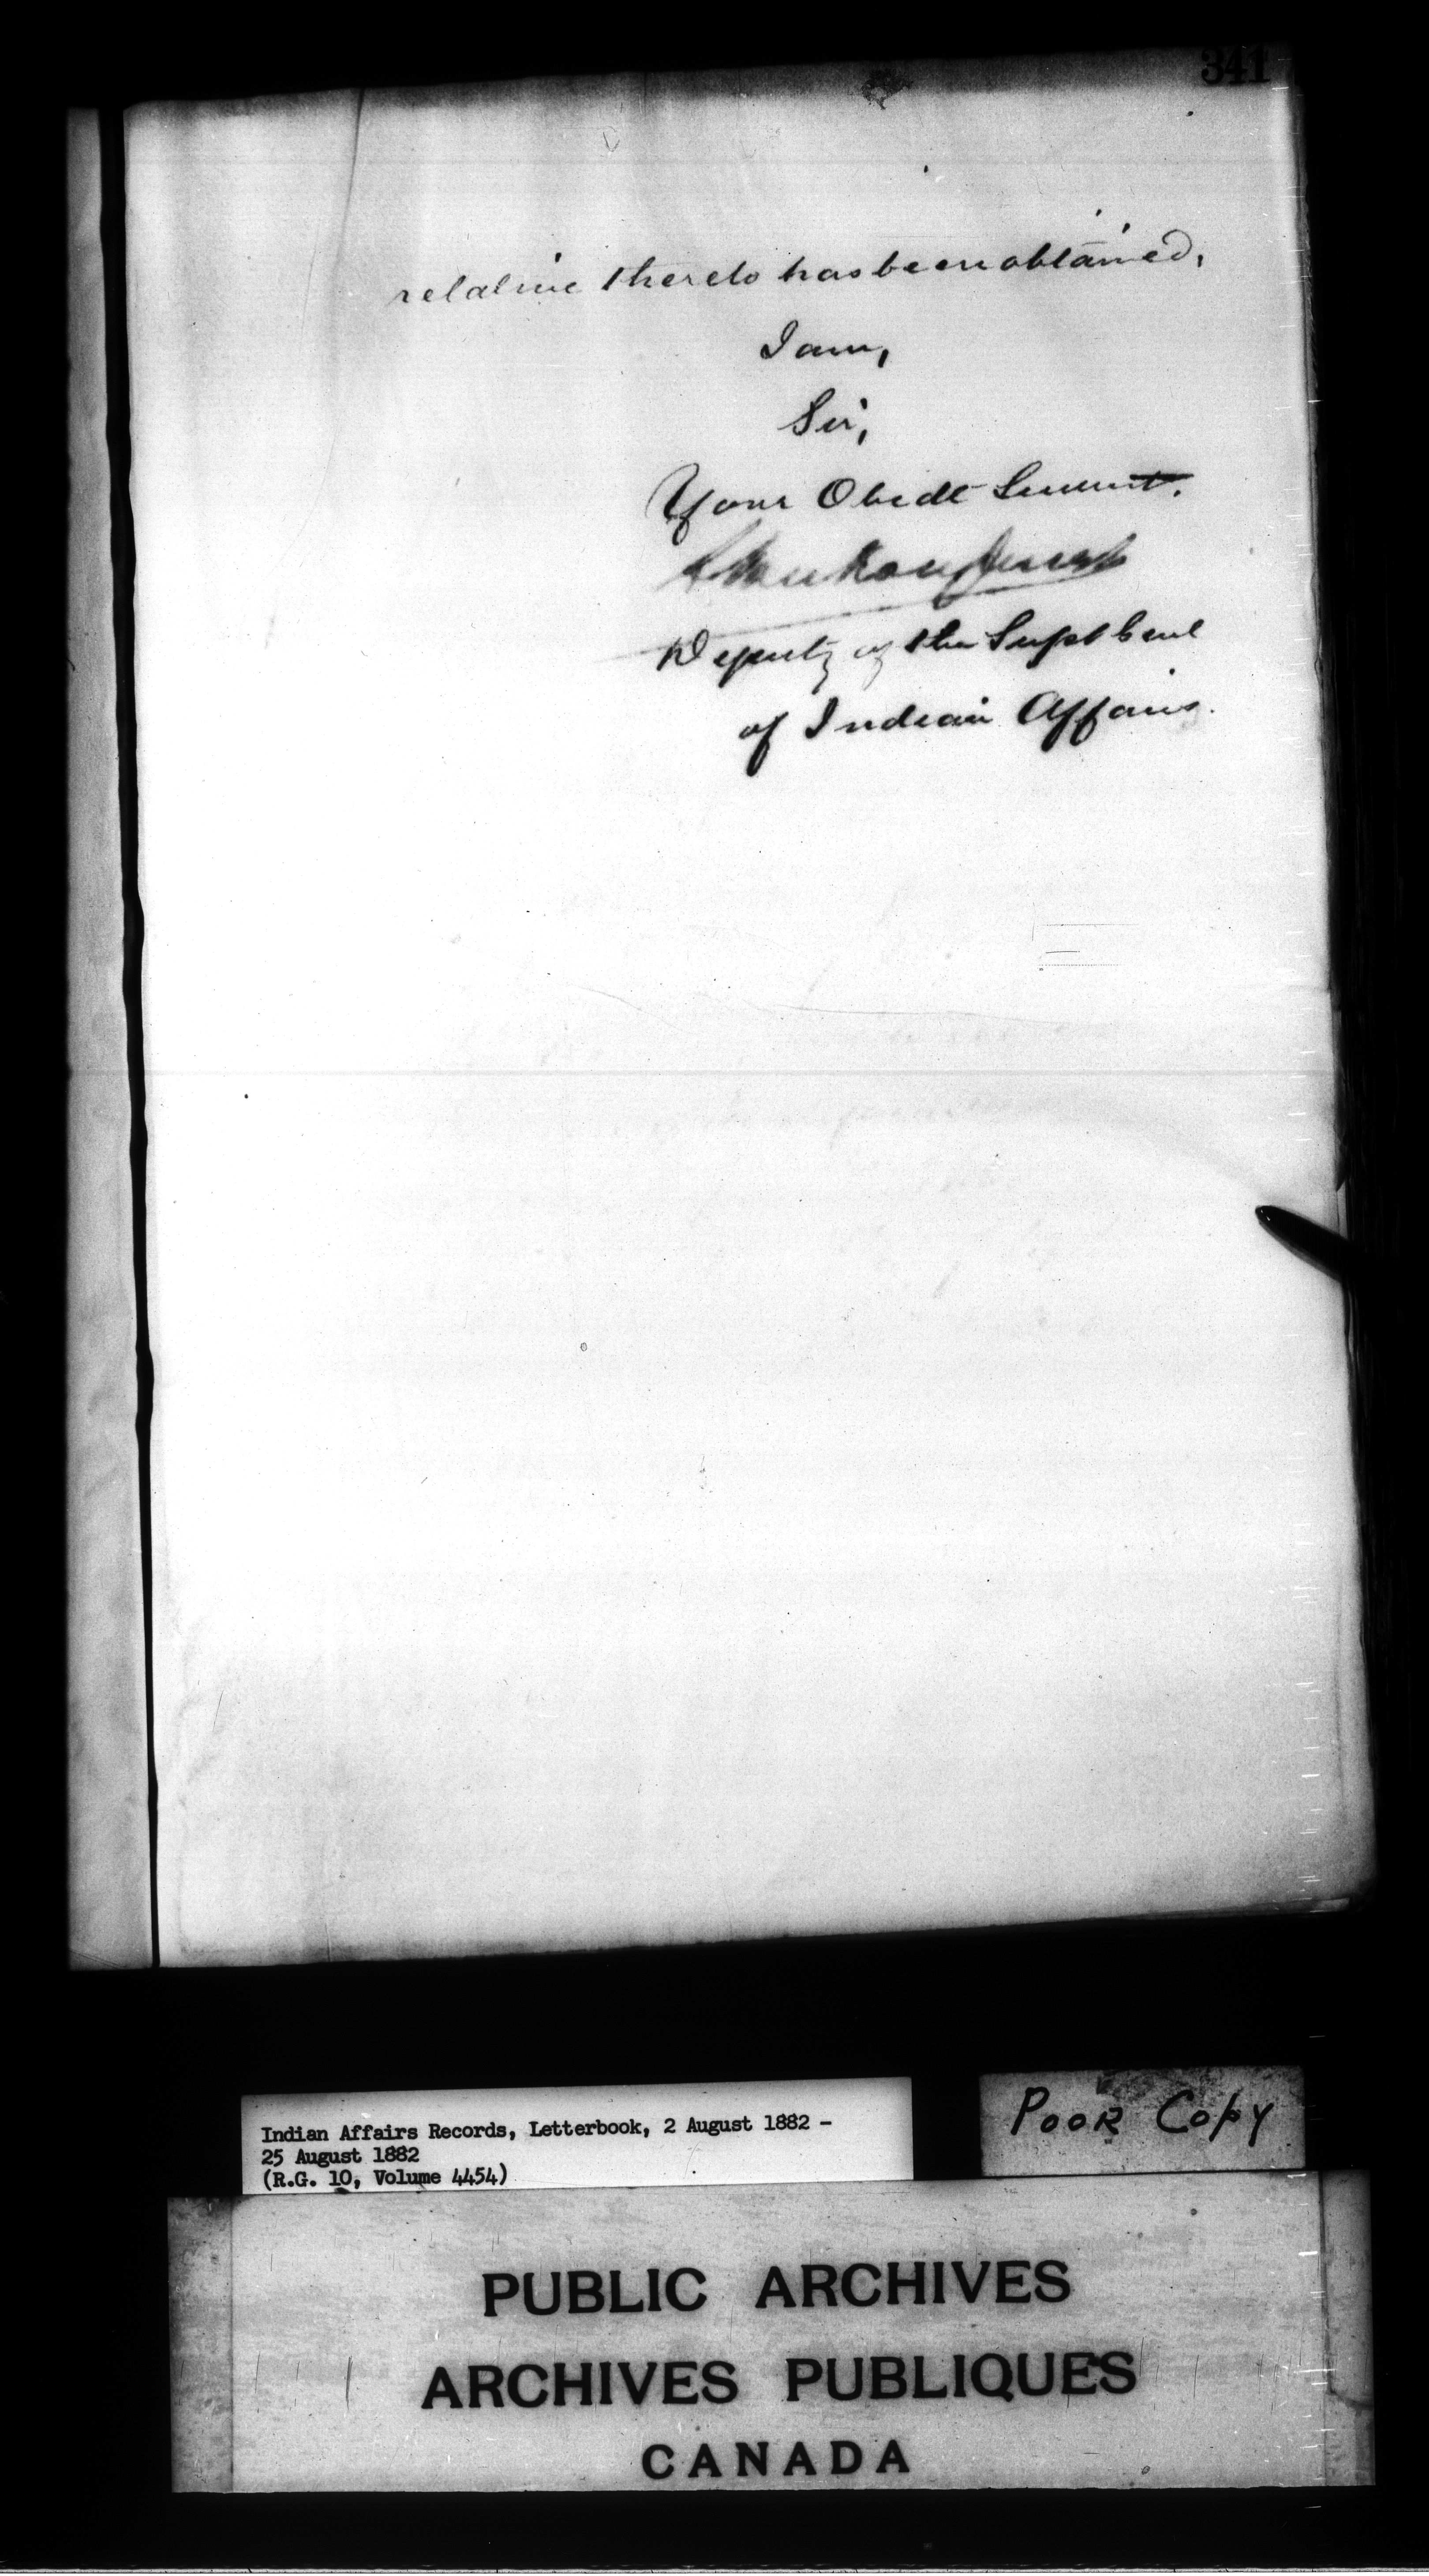 341
relative thereto has been obtained,
I am,
Sir,
Your Obedt Servant.
Deputy of the Supt Genl
of Indian Affairs.
Indian Affairs Records, Letterbook, 2 August 1882 -
25 August 1882
(R.G. 10, Volume 4454)
POOR Copy
PUBLIC ARCHIVES
ARCHIVES PUBLIQUES
CANADA